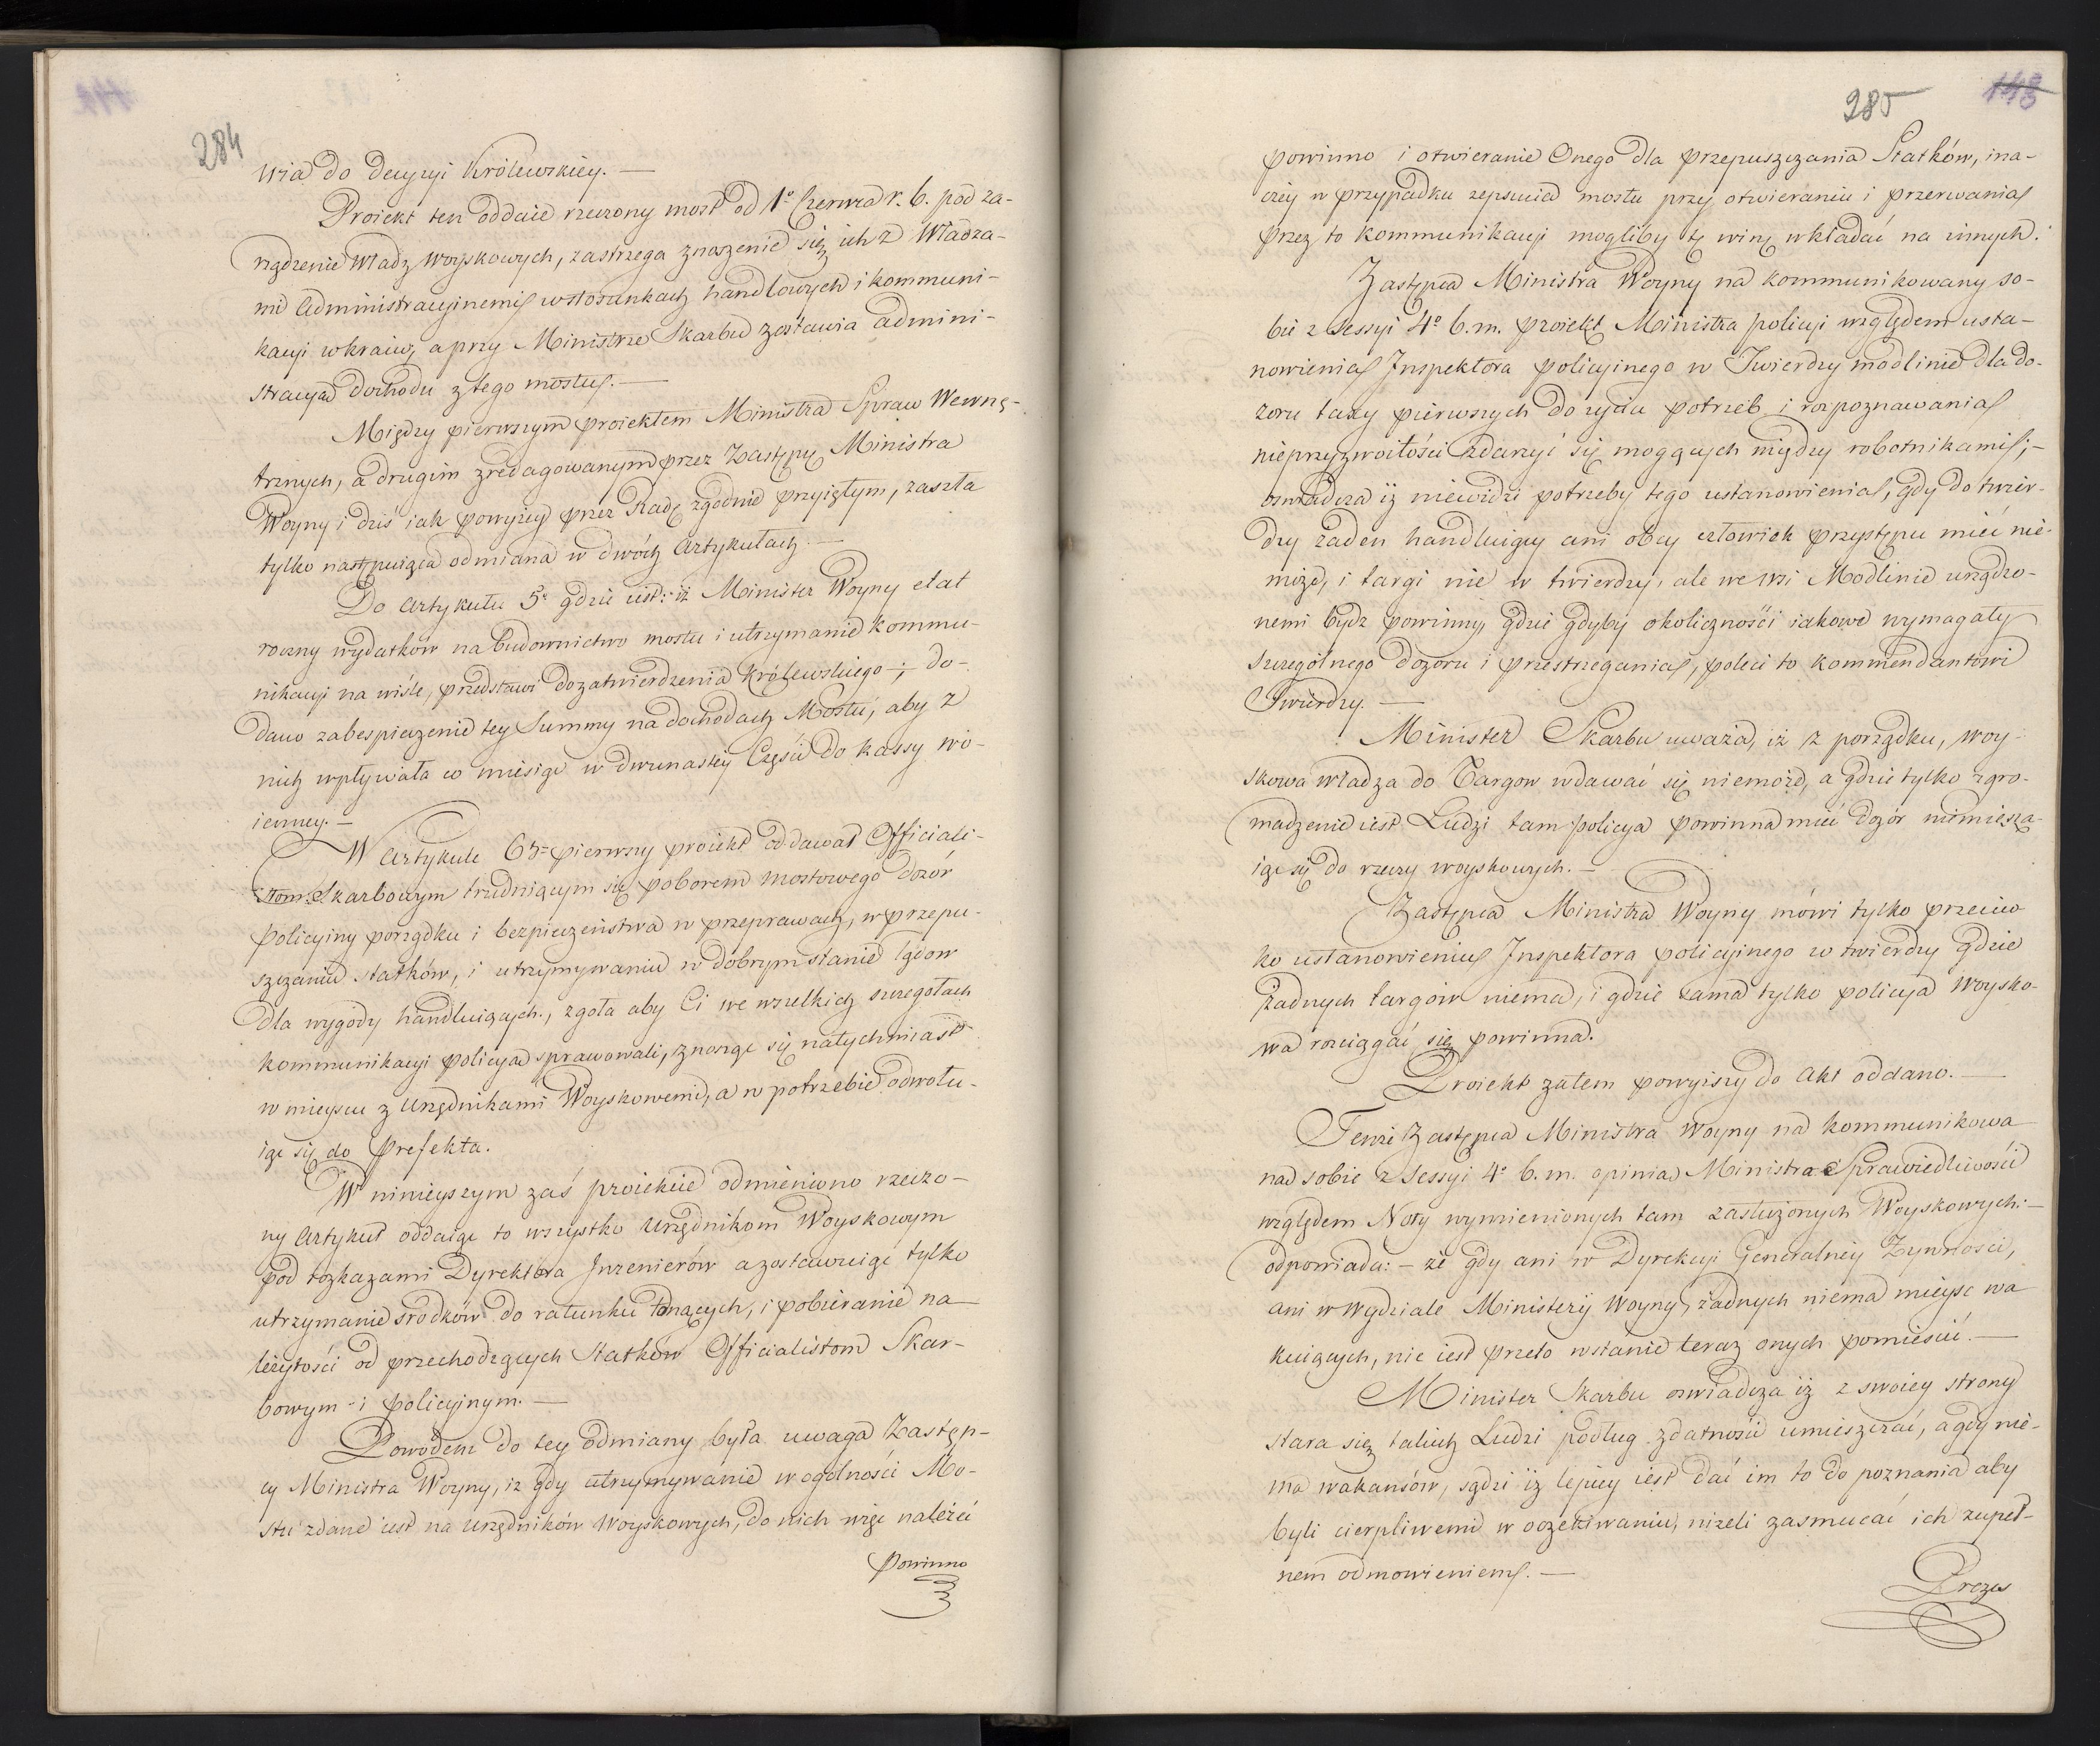 284
wia do decyzyi Królewskiey. —
Proiekt ten oddaie rzeczony most od 1º Czerwca r. b. pod za-
rządzenie Władz Woyskowych, zastrzega znoszenie się ich z Władza-
mi Administracyinemi w stosunkach handlowych i kommuni-
kacyi w kraiu, a przy Ministrze Skarbu zostawia admini-
stracyą dochodu z tego mostu. —
Między pierwszym proiektem Ministra Spraw Wewnę-
trznych, a drugim zredagowanym przez Zastępcę Ministra
Woyny i dziś iak powyżey przez Radę zgodnie przyiętym, zaszła
tylko następuiąca odmiana w dwóch Artykułach. —
Do Artykułu 5º gdzie iest: iż Minister Woyny etat
roczny wydatków na budownictwo mostu i utrzymanie kommu-
nikacyi na wiśle, przedstawi do zatwierdzenia Królewskiego —; do-
dano zabespieczenie tey Summy na dochodach Mostu, aby z
nich wpływała co miesiąc w dwunastey Części do kassy wo-
ienney. —
W Artykule 6m pierwszy proiekt oddawał Officiali-
stom Skarbowym trudniącym się poborem mostowego dozór
Policyiny porządku i bezpieczeństwa w przeprawach, w przepu-
szczaniu statków, i utrzymywaniu w dobrym stanie lądow
dla wygody handluiących, zgoła aby Ci we wszelkich szczegołach
kommunikacyi policyą sprawowali, znosząc się natychmiast
w mieyscu z Urzędnikami Woyskowemi, a w potrzebie odwołu-
iąc się do Prefekta.
W ninieyszym zaś proiekcie odmieniono rzeczo-
ny Artykuł oddaiąc to wszystko Urzędnikom Woyskowym
pod rozkazami Dyrektora Inzenierów a zostawuiąc tylko
utrzymanie srodków do ratunku tonących, i pobieranie na
leżytości od przechodzących Statków Officialistom Skar-
bowym i policyjnym. —
Powodem do tey odmiany była uwaga Zastęp-
cy Ministra Woyny, iz gdy utrzymywanie w ogolności Mo-
stu zdane iest na Urzędników Woyskowych, do nich więc należeć
Powinno
285
143
powinno i otwieranie Onego dla przepuszczania Statków, ina-
czey w przypadku zepsucia mostu przy otwieraniu i przerwania
przez to kommunikacyi mogliby tę winę wkładać na innych.
Zastępca Ministra Woyny na kommunikowany so-
bie z Sessyi 4º b. m. proiekt Ministra policyi względem usta-
nowienia Inspektora policyinego w Twierdzy modlinie dla do-
zoru taxy pierwszych do zycia potrzeb i rozpoznawania
nieprzyzwoitości zdarzyć się mogących między robotnikami; —
oswiadcza iż niewidzi potrzeby tego ustanowienia, gdy do twier-
dzy zaden handluiący ani obcy człowiek przystępu mieć nie-
może, i targi nie w twierdzy, ale we wsi Modlinie urządzo-
nemi bydz powinny, gdzie gdyby okoliczności iakowe wymagały
szczególnego dozoru i przestrzegania, poleci to kommendantowi
Twierdzy. —
Minister Skarbu uważa, iż z porządku, woy-
skowa władza do Targow wdawać się niemoże, a gdzie tylko zgro-
madzenie iest Ludzi tam policya powinna mieć dozór niemiesza-
iąc się do rzeczy woyskowych. —
Zastępca Ministra Woyny mówi tylko przeciw
ko ustanowieniu Inspektora policyinego w twierdzy gdzie
żadnych targów niema, i gdzie sama tylko policya Woysko-
wa rozciągać się powinna.
Proiekt zatem powyiszy do Akt oddano. —
Tenże Zastępca Ministra Woyny na kommunikowa
ną sobie z Sessyi 4º b. m. opinią Ministra Sprawiedliwości
względem Noty wymienionych tam zasłużonych Woyskowych: —
odpowiada: — że gdy ani w Dyrekcyi Generalney Zywności,
ani w Wydziale Ministeryi Woyny, żadnych niema mieysc wa
kuiących, nie iest przeto w stanie teraz onych pomieścić. —
Minister Skarbu oswiadcza iż z swoiey strony
stara się takich Ludzi podług zdatności umieszczać, a gdy nie-
ma wakansów, sądzi iż lepiey iest dać im to do poznania aby
byli cierpliwemi w oczekiwaniu, niżeli zasmucać ich zupeł-
nem odmowieniem. —
Prezes